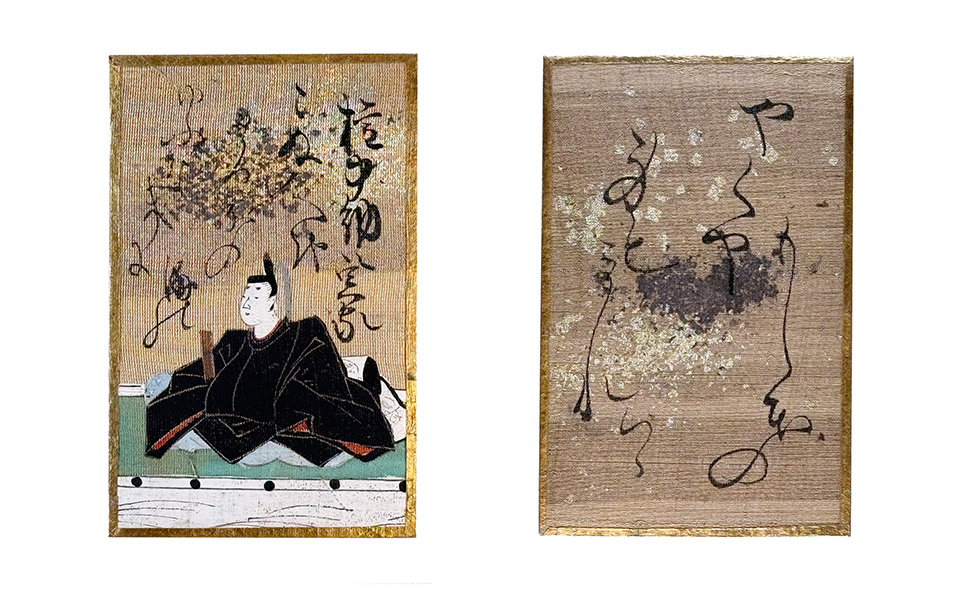 権中納言定家
こぬ人を
まつほの
浦の
ゆふ
なきに
やくや
もしほの
身もこ
かれつゝ